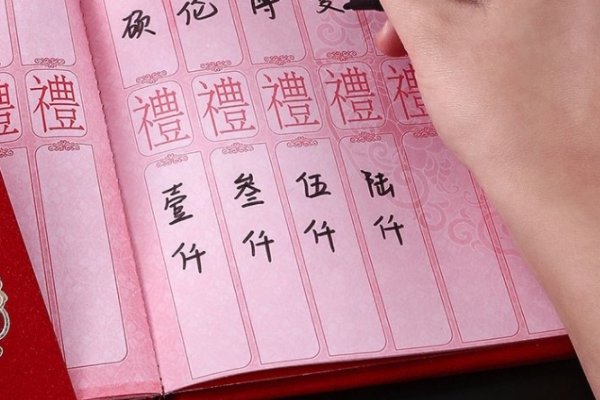 硕
伦
禮 禮 禮 禮 禮 禮 禮
壹仟
叁仟
伍仟
陆仟